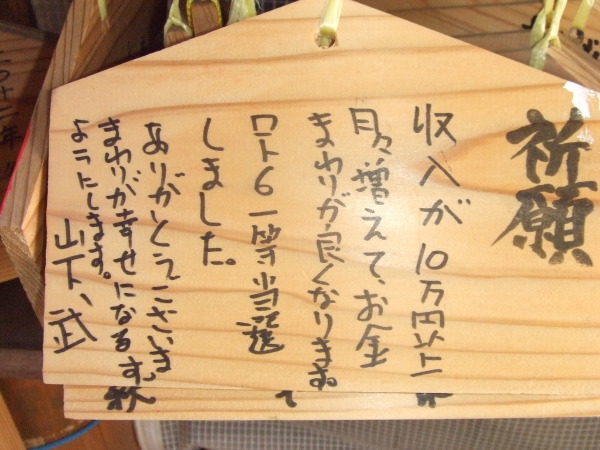 祈願
収入が10万円以上
月々増えて、お金
まわりが良くなります。
ロト6一等当選
しました。
ありがとうございま
まわりが幸せになるす。
ようにします。
山下、武